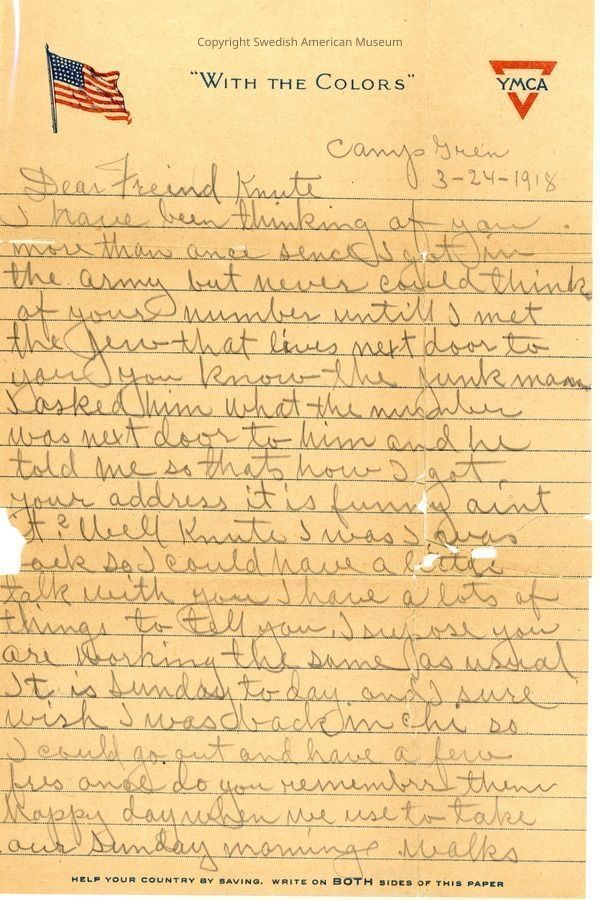 Copyright Swedish American Museum
"WITH THE COLORS"
YMCA
Camp Gren
3-24-1918
Dear Freind Knute
I have been thinking of you
more than once senc I got in
the army but never could think
of your number untill I met
the Jew that lives next door to
you you know the junk man
I asked him what the number
was next door to him and he
told me so thats how I got
your address it is funny aint
it? Well Knute I was I was
back so I could have a little
talk with you I have a lots of
things to tell you. I supose you
are working the same as usual
It is Sunday to day and I sure
wish I was back in Chi so
I could go out and have a few
do you remember them
happy day when we use to take
our Sunday morning walks
HELP YOUR COUNTRY BY SAVING. WRITE ON BOTH SIDES OF THIS PAPER